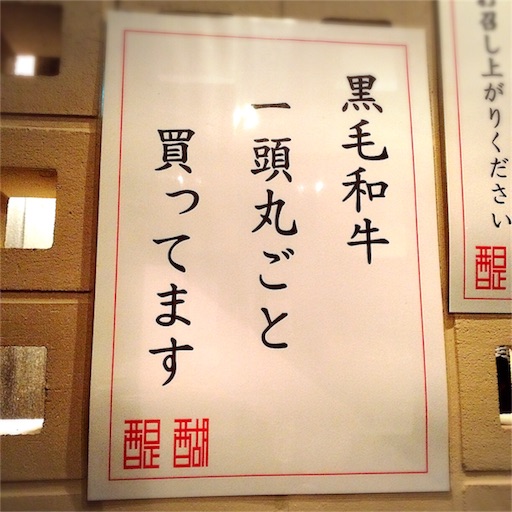 黒毛和牛
一頭丸ごと
買ってます
醍醐
召し上がりください
醍